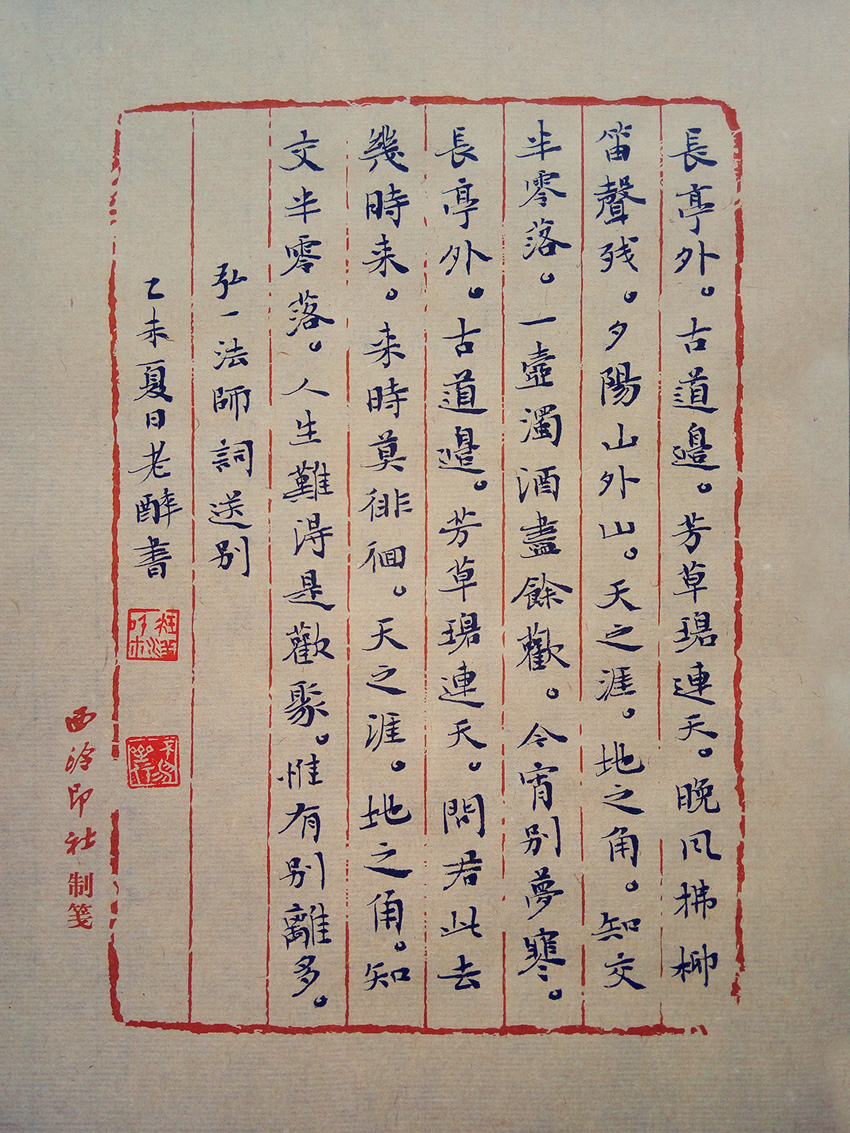 長亭外。古道邊。芳草碧連天。晚风拂柳
笛聲残。夕陽山外山。天之涯。地之角。知交
半零落。一壺濁酒盡餘歡。今宵別夢寒。
長亭外。古道邊。芳草碧連天。問君此去
幾時来。来時莫徘徊。天之涯。地之角。知
交半零落。人生難得是歡聚。惟有别離多。
弘一法師詞送别
乙未夏日老醉書
西泠印社制箋